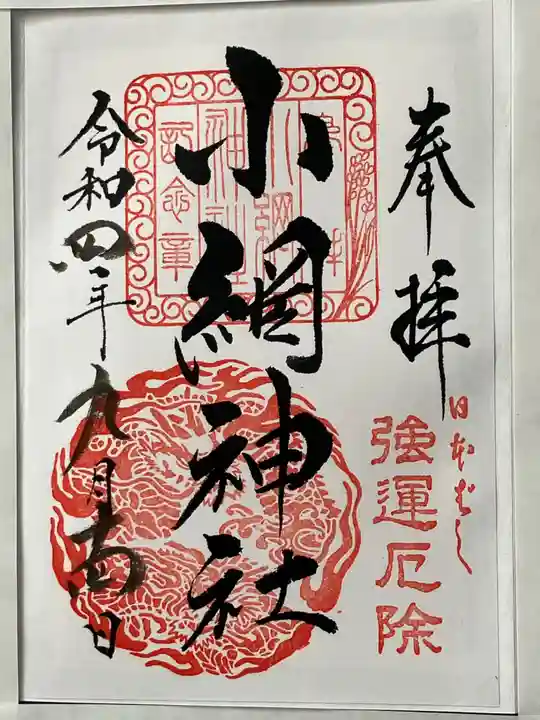 奉拝
日本ばし
強運厄除
小網神社
小網
神社
記念章
令和四年九月
日